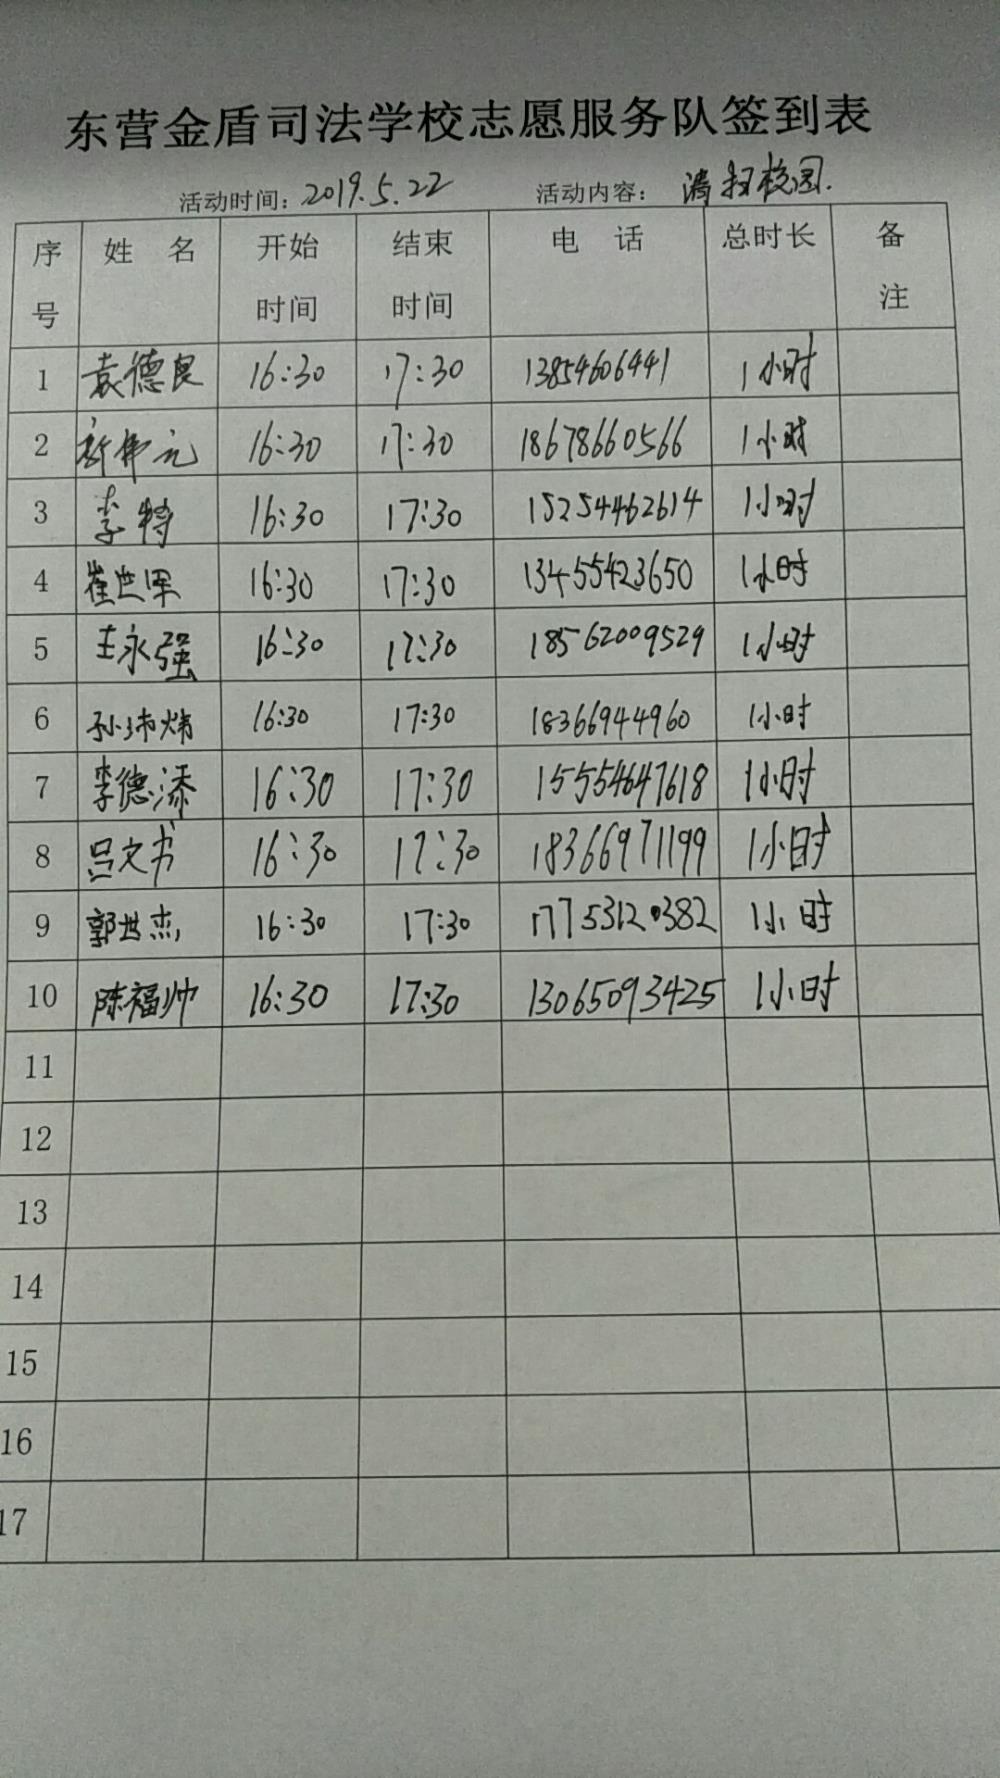 东营金盾司法学校志愿服务队签到表
活动时间：2019.5.22 活动内容：清扫校园.
序号 姓名 开始时间 结束时间 电话 总时长 备注
1 袁德良 16:30 17:30 13854606441 1小时
2 16:30 17:30 18678660566 1小时
3 李特 16:30 17:30 15254462614 1小时
4 崔世军 16:30 17:30 13455423650 1小时
5 王永强 16:30 17:30 18562009529 1小时
6 16:30 17:30 18366944960 1小时
7 李德添 16:30 17:30 15554647618 1小时
8 吕文书 16:30 17:30 18366971199 1小时
9 郭世杰 16:30 17:30 17753120382 1小时
10 陈福帅 16:30 17:30 13065093425 1小时
11
12
13
14
15
16
17